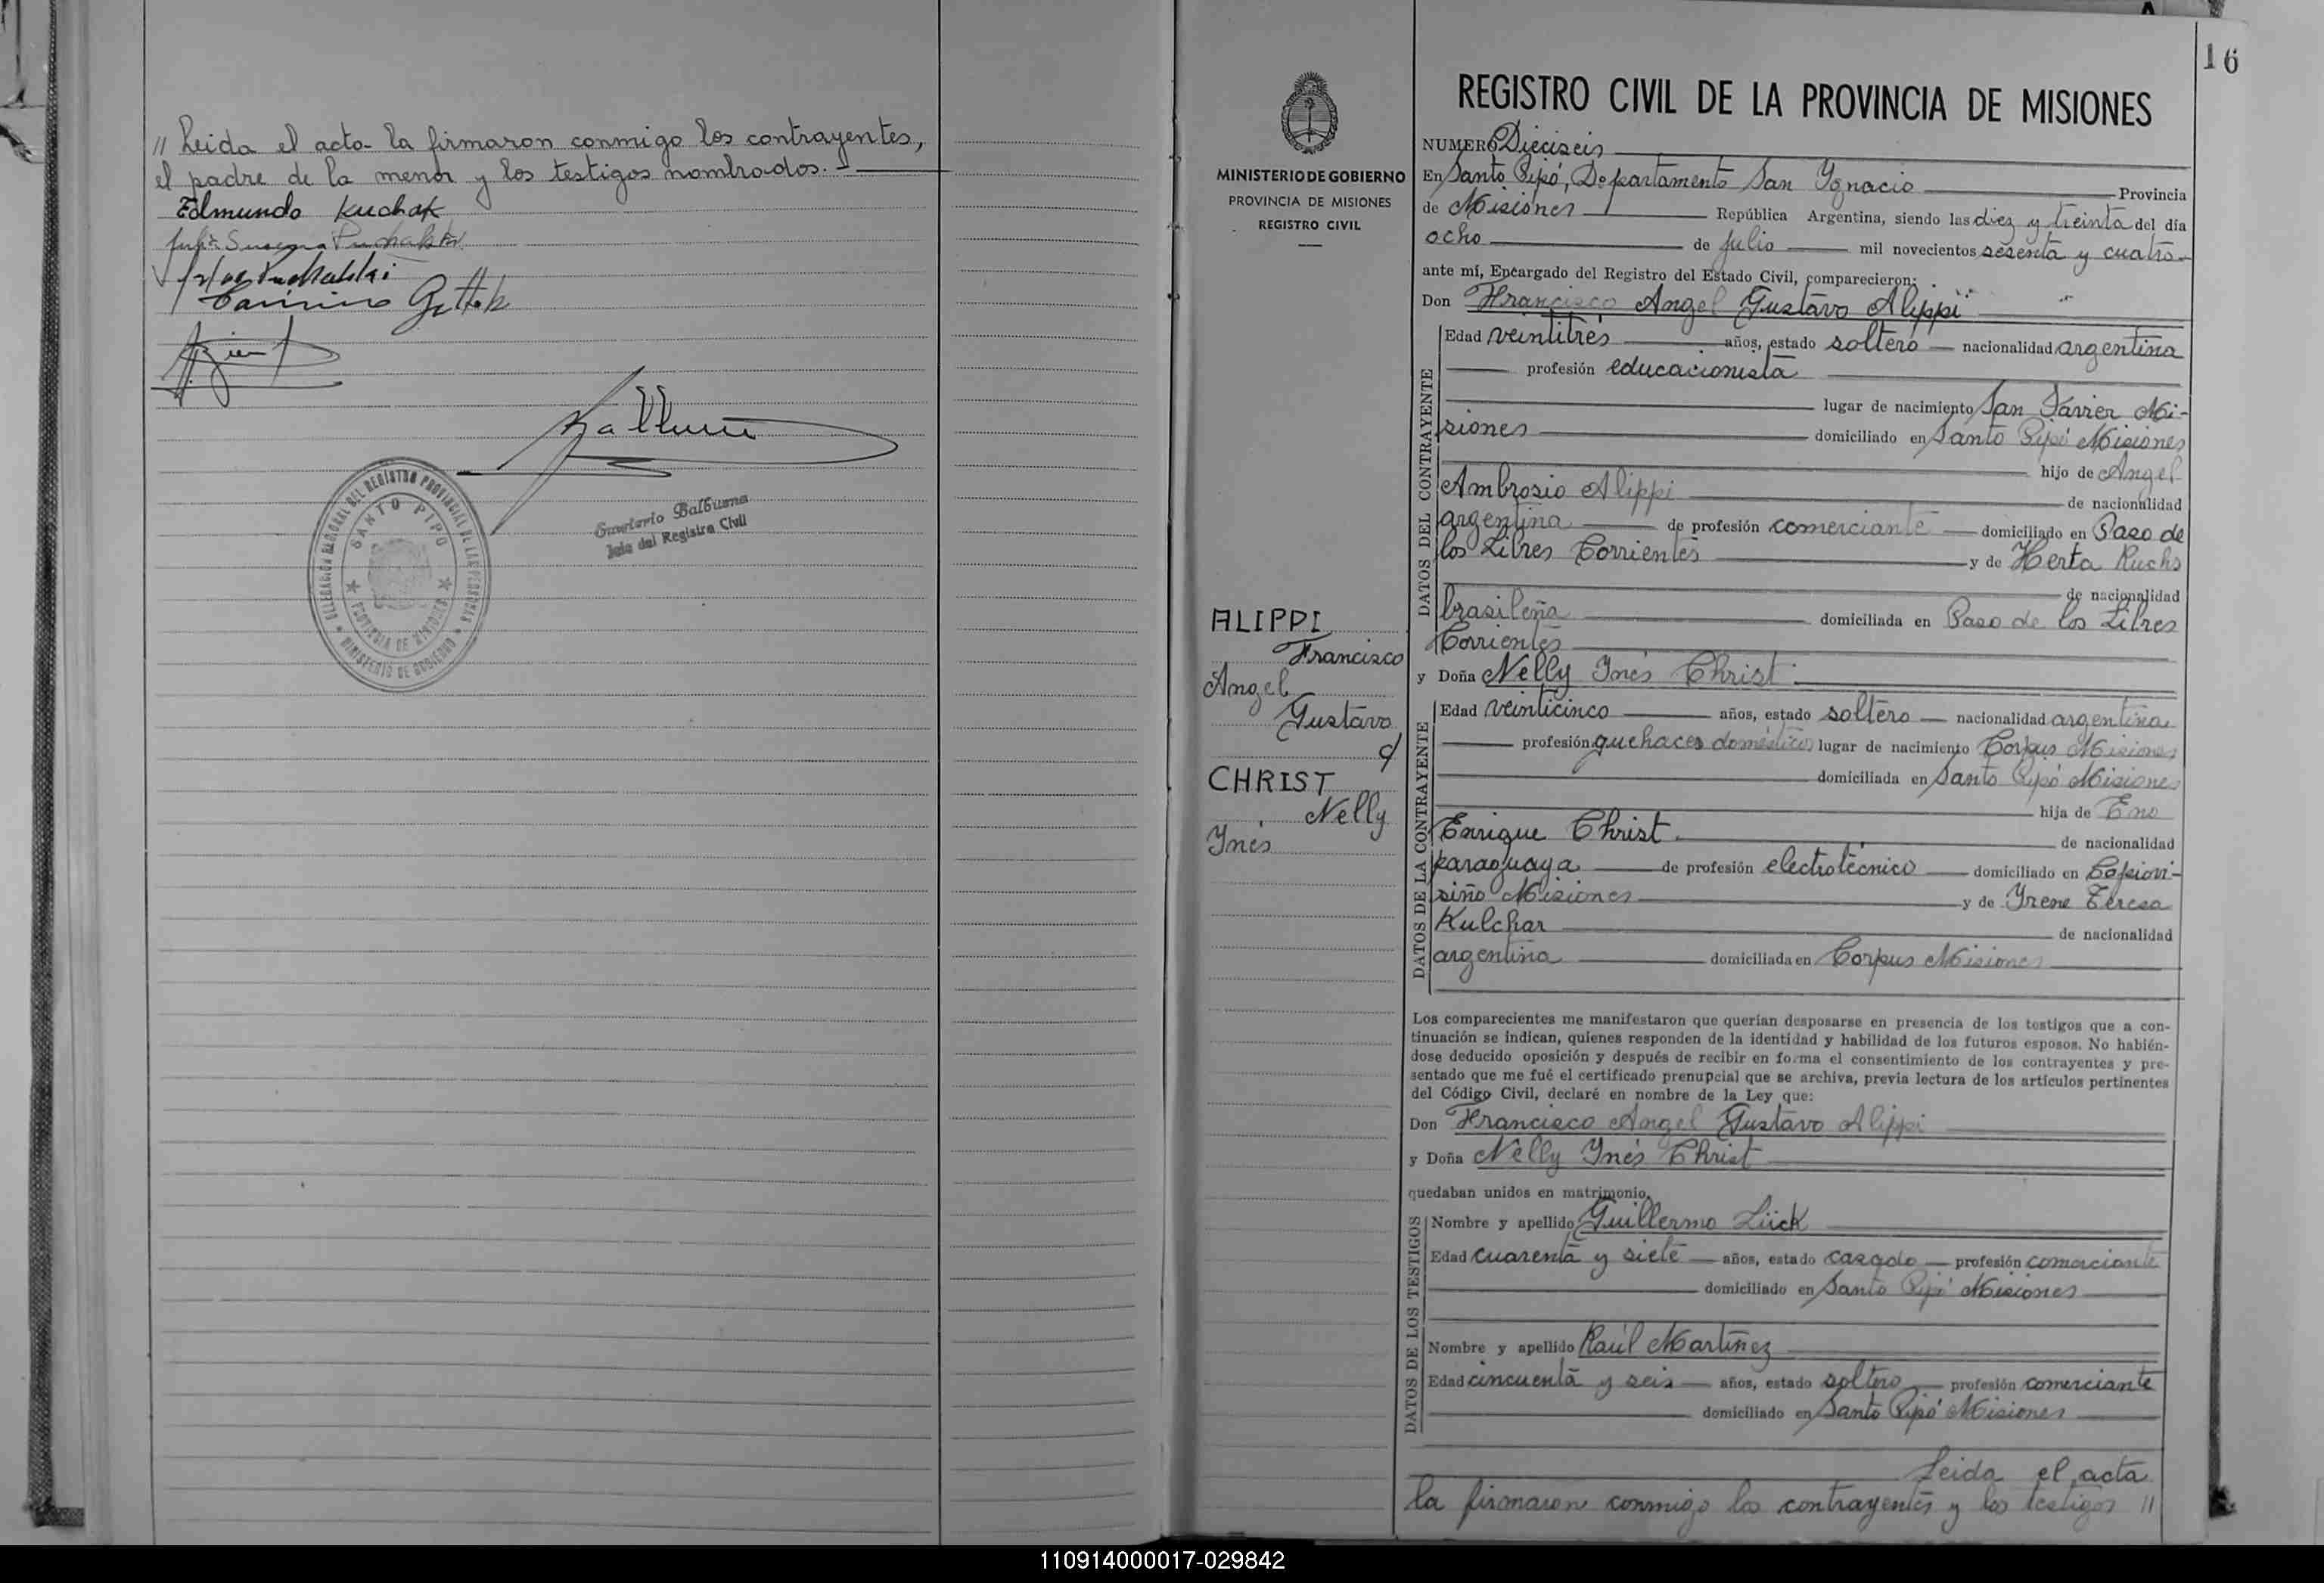 // Leida el acta la firmaron conmigo los contrayentes,
el padre de la menor y los testigos nombrados. –
Edmundo Kuchak
Balbuena
DELEGACION REGIONAL DEL REGISTRO PROVINCIAL DE LAS PERSONAS
SANTO PIPO
PROVINCIA DE MISIONES
MINISTERIO DE GOBIERNO
Balbuena
Jefe del Registro Civil
16
MINISTERIO DE GOBIERNO
PROVINCIA DE MISIONES
REGISTRO CIVIL
ALIPPI
Francisco
Angel
Gustavo
c/
CHRIST
Nelly
Inés
REGISTRO CIVIL DE LA PROVINCIA DE MISIONES
NUMERO Dieciseis
En Santo Pipó, Departamento San Ignacio Provincia
de Misiones República Argentina, siendo las diez y treinta del día
ocho de julio mil novecientos sesenta y cuatro
ante mí, Encargado del Registro del Estado Civil, comparecieron:
Don Francisco Angel Gustavo Alippi
DATOS DEL CONTRAYENTE
Edad veintitrés años, estado soltero nacionalidad argentina
profesión educacionista
lugar de nacimiento San Javier Mi-
siones domiciliado en Santo Pipó Misiones
hijo de Angel
Ambrosio Alippi de nacionalidad
argentina de profesión comerciante domiciliado en Paso de
los Libres Corrientes y de Herta Ruchs
de nacionalidad
brasileña domiciliada en Paso de los Libres
Corrientes
y Doña Nelly Inés Christ
DATOS DE LA CONTRAYENTE
Edad veinticinco años, estado soltero nacionalidad argentina
profesión quehaceres domésticos lugar de nacimiento Corpus Misiones
domiciliada en Santo Pipó Misiones
hija de Eno
Enrique Christ de nacionalidad
paraguaya de profesión electrotécnico domiciliado en Capiovi-
siño Misiones y de Irene Teresa
Kulchar de nacionalidad
argentina domiciliada en Corpus Misiones
Los comparecientes me manifestaron que querían desposarse en presencia de los testigos que a con-
tinuación se indican, quienes responden de la identidad y habilidad de los futuros esposos. No habién-
dose deducido oposición y después de recibir en forma el consentimiento de los contrayentes y pre-
sentado que me fué el certificado prenupcial que se archiva, previa lectura de los artículos pertinentes
del Código Civil, declaré en nombre de la Ley que:
Don Francisco Angel Gustavo Alippi
y Doña Nelly Inés Christ
quedaban unidos en matrimonio.
DATOS DE LOS TESTIGOS
Nombre y apellido Guillermo Lück
Edad cuarenta y siete años, estado casado profesión comerciante
domiciliado en Santo Pipó Misiones
Nombre y apellido Raúl Martinez
Edad cincuenta y seis años, estado soltero profesión comerciante
domiciliado en Santo Pipó Misiones
Leida el acta
la firmaron conmigo los contrayentes y los testigos //
110914000017-029842